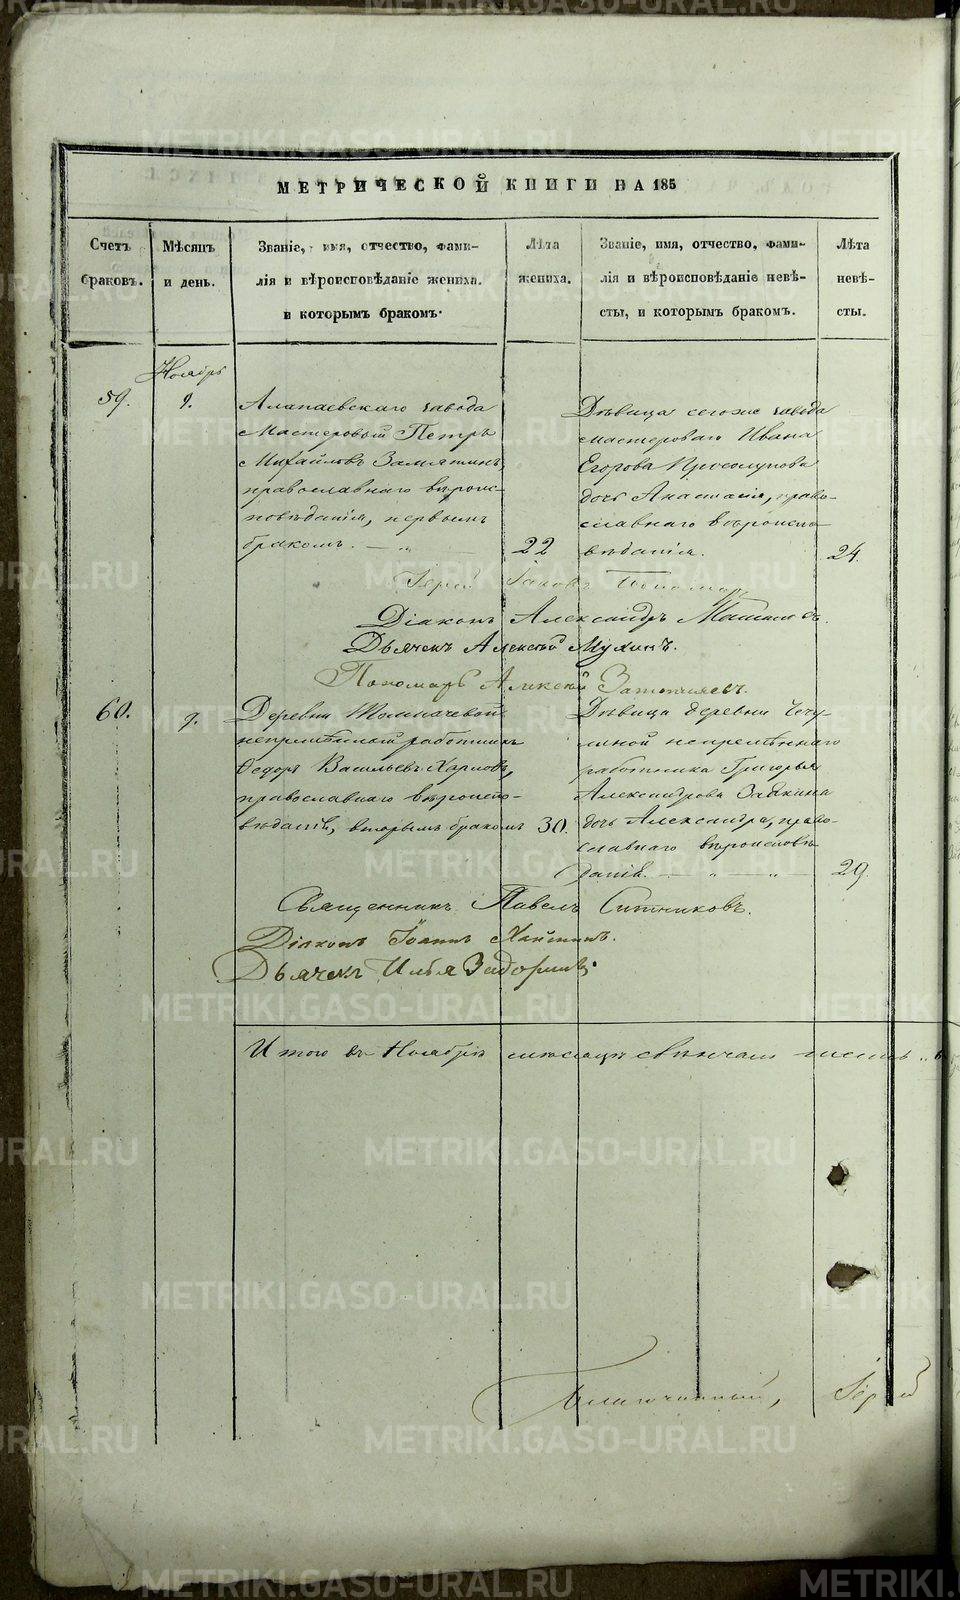 МЕТРИЧЕСКОЙ КНИГИ НА 185
Счетъ браковъ.
Мѣсяцъ и день.
Званіе, имя, отчество, фами-
лія и вѣроисповѣданіе жениха.
и которымъ бракомъ.
Лѣта жениха.
Званіе, имя, отчество, фами-
лія и вѣроисповѣданіе невѣ-
сты, и которымъ бракомъ.
Лѣта невѣ-
сты.
Ноябрь
59.
9.
Алапаевскаго завода
Мастеровый Петръ
Михайловъ Замятинъ,
православнаго вѣроис-
повѣданія, первымъ
бракомъ.
22
Дѣвица сегоже завода
мастероваго Ивана
Егорова
дочь Анастасія, право-
славнаго вѣроиспо-
вѣданія.
24.
Іерей Іаковъ
Діаконъ Александръ
Дьячекъ Алексѣй Мухинъ.
Пономарь Алексѣй
60.
9.
Деревни Толмачевой
непремѣнный работникъ
Ѳедоръ Васильевъ Харловъ,
православнаго вѣроиспо-
вѣданія, вторымъ бракомъ
30.
Дѣвица деревни Чечу-
линой непремѣннаго
работника Григорья
Александрова Заякина
дочь Александра, право-
славнаго вѣроисповѣ-
данія.
29.
Священникъ Павелъ Ситниковъ.
Діаконъ Іоаннъ
Дьячекъ Илья Задоринъ.
Итого въ Ноябрѣ мѣсяцѣ шесть
Благочинный, Іерей
METRIKI.GASO-URAL.RU